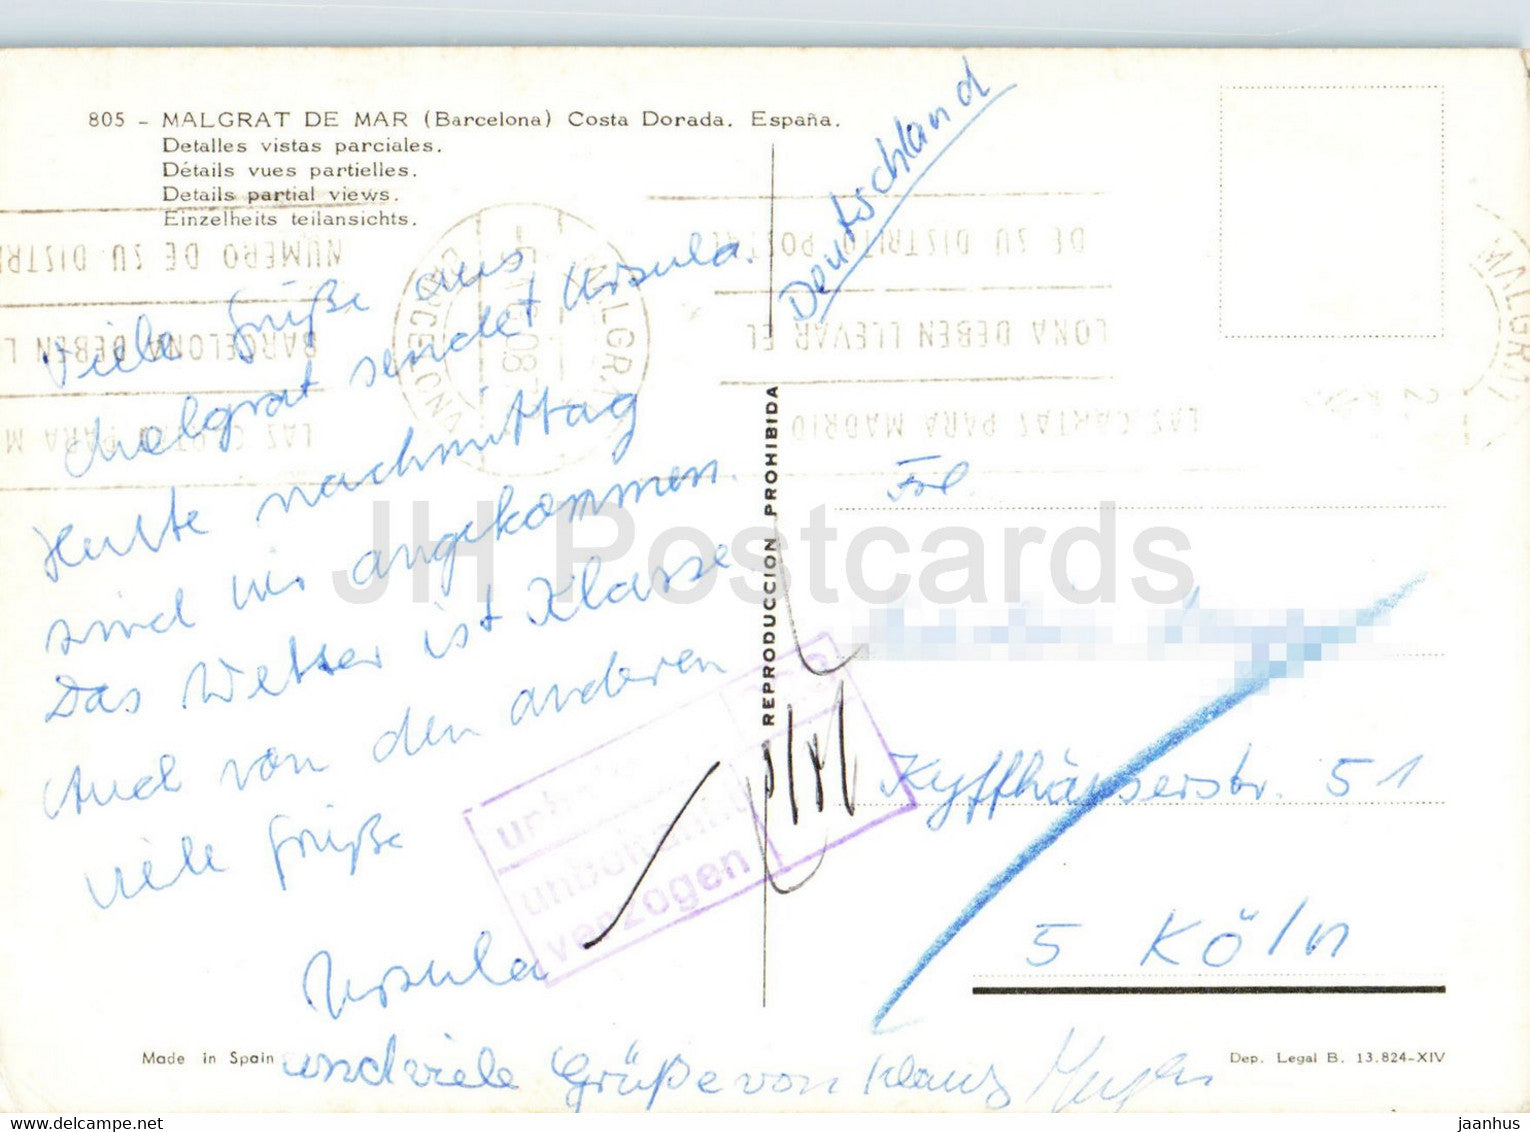 805 - MALGRAT DE MAR (Barcelona) Costa Dorada. España.
Detalles vistas parciales.
Détails vues partielles.
Details partial views.
Einzelheits teilansichts.
Viele Grüße aus
Malgrat sendet Ursula.
Heute nachmittag
sind wir angekommen.
Das Wetter ist Klasse
Auch von den anderen
viele Grüße
Ursula
und viele Grüße von Klaus
Made in Spain
REPRODUCCION PROHIBIDA
Deutschland
NUMERO DE SU DISTRI
BARCELONA DEBEN L
LAS CARTAS PARA M
DE SU DISTRITO POSTAL
LONA DEBEN LLEVAR EL
LAS CARTAS PARA MADRID
MALGRAT
Frl
Kyffhäuserstr. 51
5 Köln
unbekannt
verzogen
Dep. Legal B. 13.824-XIV
JH Postcards
jaanhus